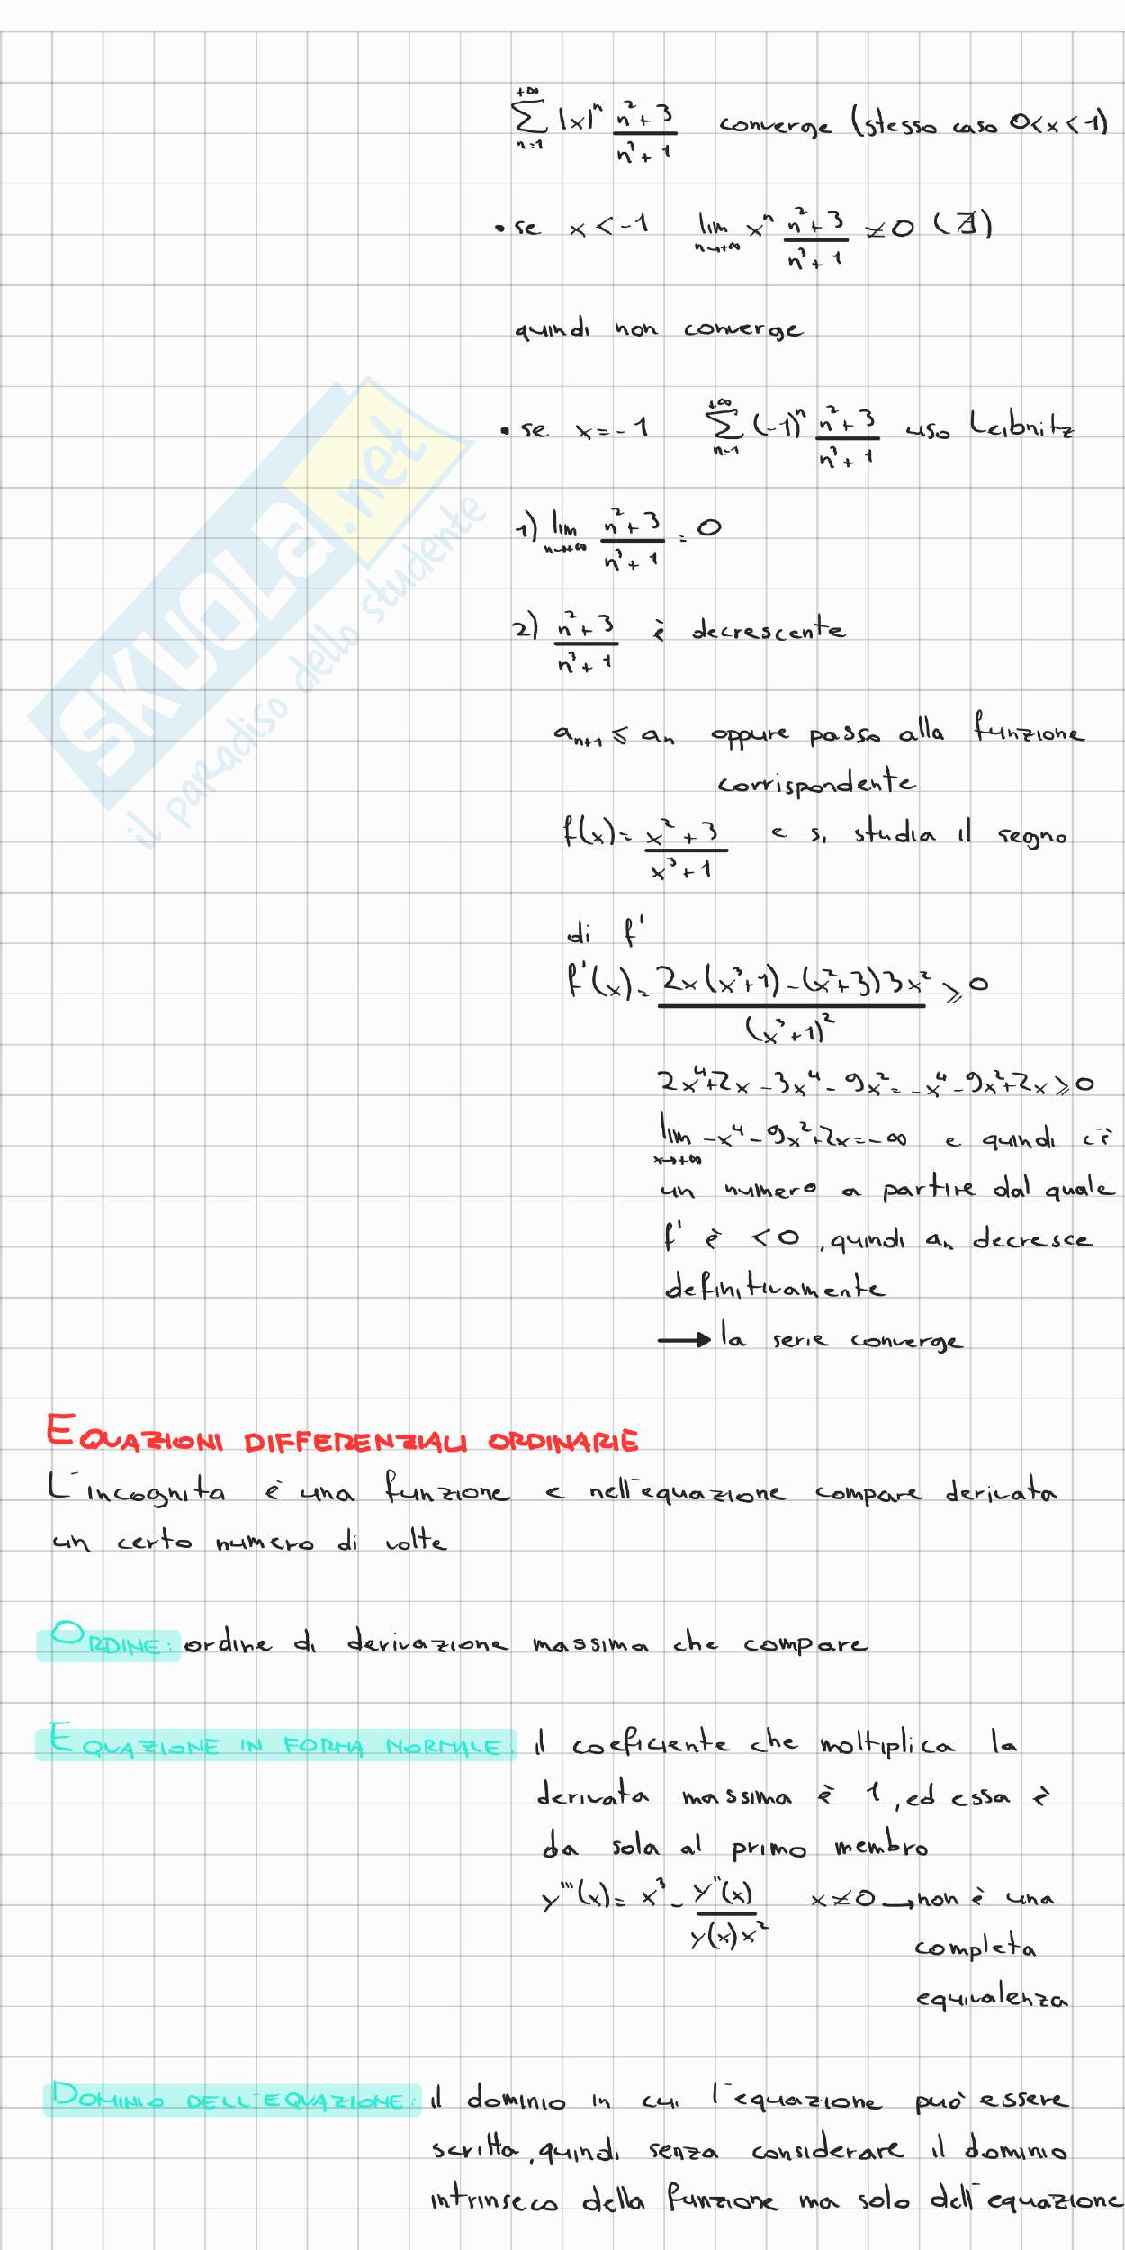 +∞
∑ |x|ⁿ (n²+3)/(n³+1) converge (stesso caso 0<x<1)
n=1
• se x<-1 lim xⁿ (n²+3)/(n³+1) ≠0 (∄)
n→+∞
quindi non converge
• se x=-1 ∑ (-1)ⁿ (n²+3)/(n³+1) uso Leibnitz
+∞
n=1
1) lim (n²+3)/(n³+1) = 0
n→+∞
2) (n²+3)/(n³+1) è decrescente
aₙ₊₁ ≤ aₙ oppure passo alla funzione
corrispondente
f(x)= (x²+3)/(x³+1) e si studia il segno
di f'
f'(x)= (2x(x³+1)-(x²+3)3x²)/(x³+1)² ≥0
2x⁴+2x-3x⁴-9x²=-x⁴-9x²+2x≥0
lim -x⁴-9x²+2x=-∞ e quindi c'è
x→+∞
un numero a partire dal quale
f' è <0, quindi aₙ decresce
definitivamente
→ la serie converge
EQUAZIONI DIFFERENZIALI ORDINARIE
L'incognita è una funzione e nell'equazione compare derivata
un certo numero di volte
ORDINE: ordine di derivazione massima che compare
EQUAZIONE IN FORMA NORMALE: il coeficiente che moltiplica la
derivata massima è 1, ed essa è
da sola al primo membro
y'''(x)= x³ - y''(x)/(y(x)x²) x≠0 → non è una
completa
equivalenza
DOMINIO DELL'EQUAZIONE: il dominio in cui l'equazione può essere
scritta, quindi senza considerare il dominio
intrinseco della funzione ma solo dell'equazione
SKUOLA.net
il paradiso dello studente